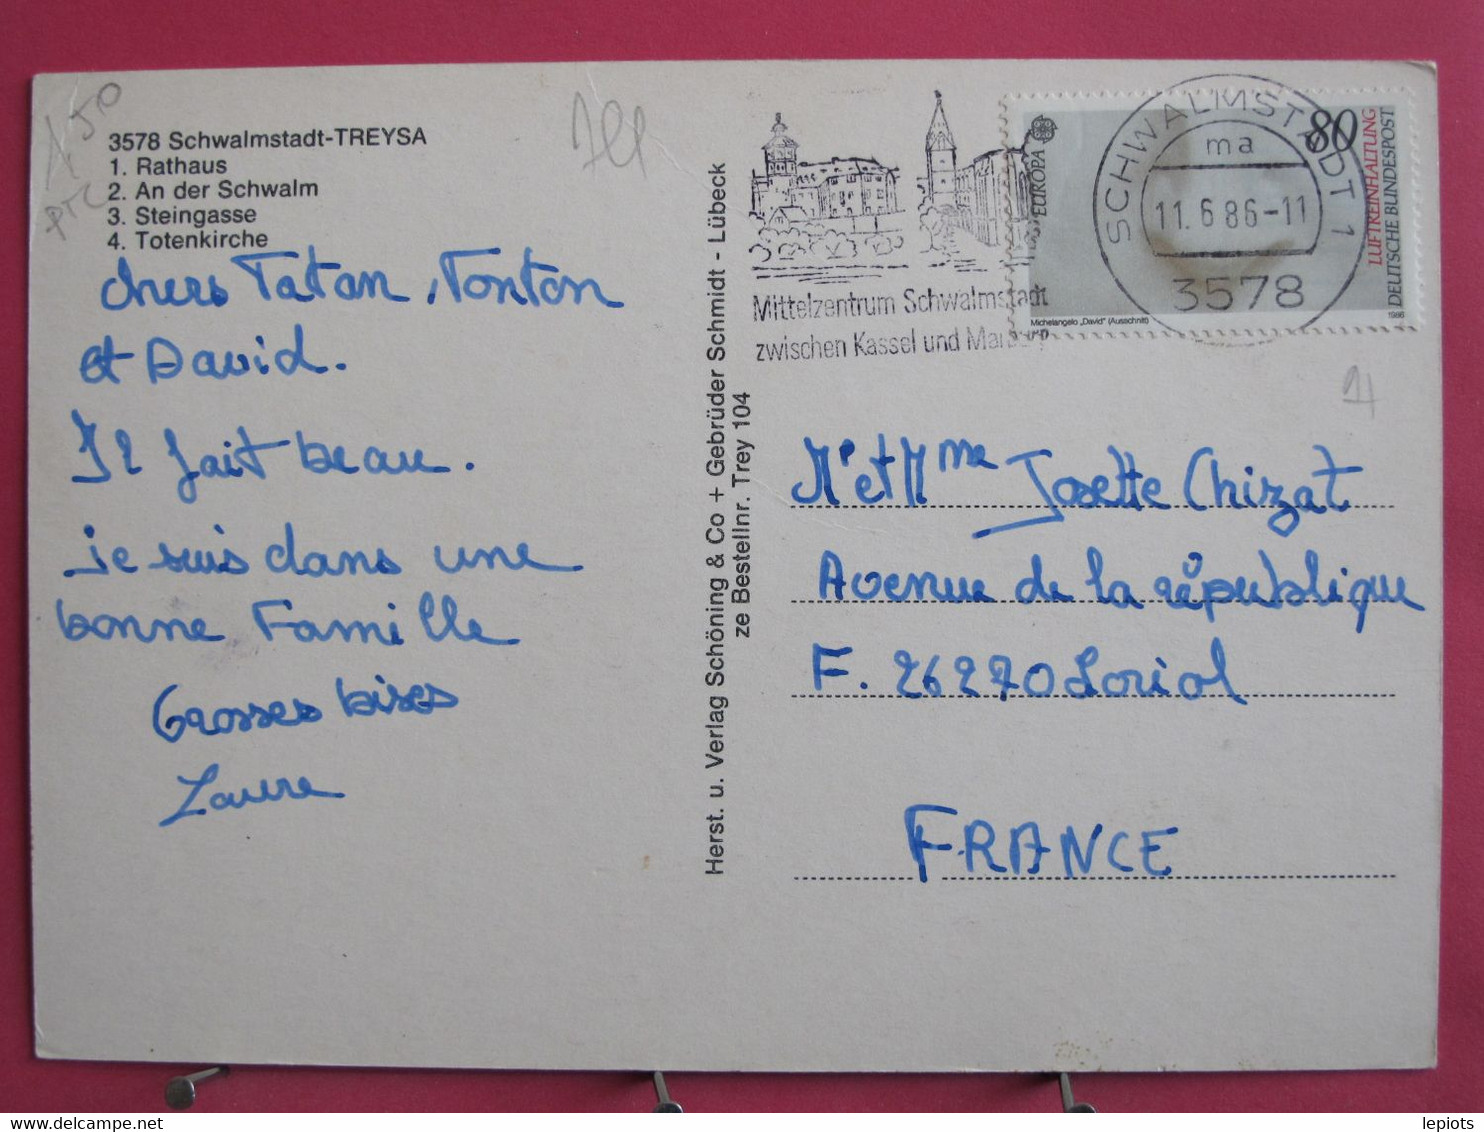 3578 Schwalmstadt-TREYSA
1. Rathaus
2. An der Schwalm
3. Steingasse
4. Totenkirche
chers Tatan, Tonton
et David.
Il fait beau.
je suis dans une
bonne Famille
Grosses bises
Laure
Herst. u. Verlag Schöning & Co + Gebrüder Schmidt - Lübeck
ze Bestellnr. Trey 104
Mittelzentrum Schwalmstadt
zwischen Kassel und Marburg
EUROPA
80
LUFTREINHALTUNG
DEUTSCHE BUNDESPOST
Michelangelo „David" (Ausschnitt)
1986
SCHWALMSTADT 1
ma
11.6.86-11
3578
Mr et Mme Josette Chizat
Avenue de la république
F. 26270 Loriol
FRANCE
lepiots